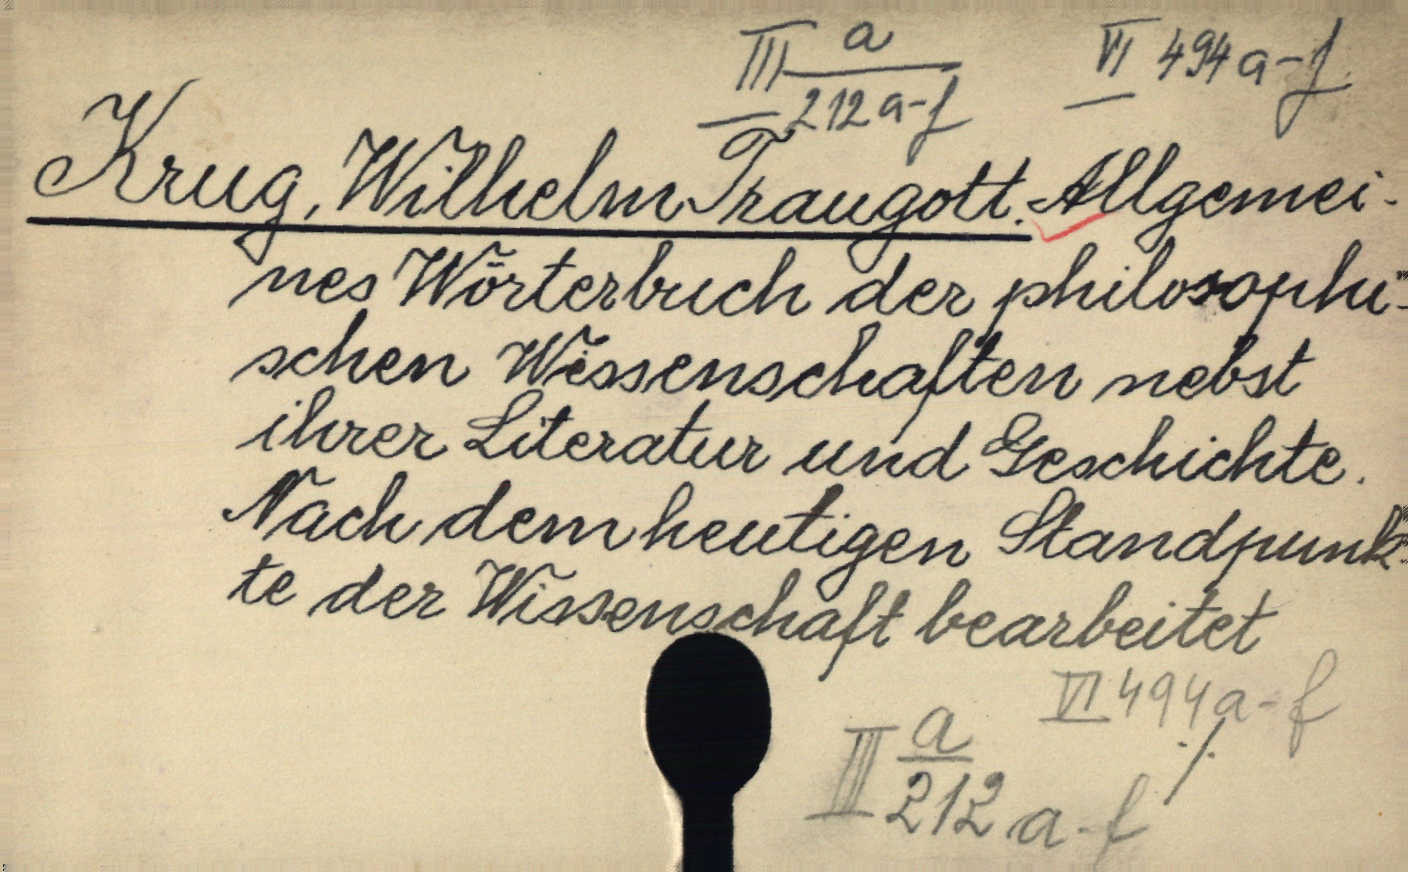 III a/212 a-f VI 494 a-f
Krug, Wilhelm Traugott. Allgemei-
nes Wörterbuch der philosophi-
schen Wissenschaften nebst
ihrer Literatur und Geschichte.
Nach dem heutigen Standpunk-
te der Wissenschaft bearbeitet
VI 494 a-f
./.
III a/212 a-f